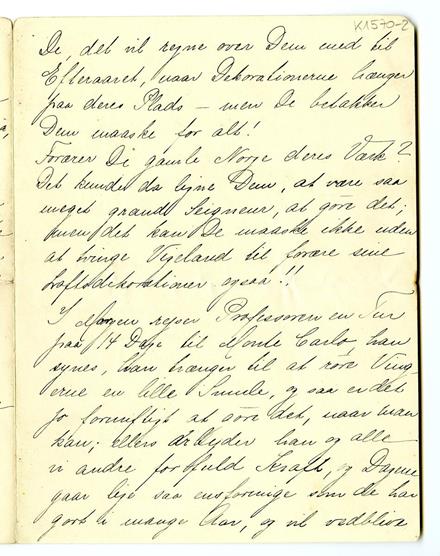 K1570-2
De, det vil regne over Dem med til
Efteraaret, naar Dekorationerne hænger
paa deres Plads – men De betakker
Dem maaske for alt!
Forærer De gamle Norge deres Værk?
Det kunde da ligne Dem, at være saa
meget grand Seigneur, at göre det;
men det kan De maaske ikke uden
at tvinge Vigeland til forære sine
kraftsdekorationer ogsaa!!
I Morgen rejser Professoren en Tur
paa 14 Dage til Monte Carlo, han
synes, han trænger til at röre Ving-
erne en lille Smule, og saa er det
jo fornuftigt at göre det, naar man
kan; ellers arbejder han og alle
vi andre for fuld Kraft, og Dagene
gaar lige saa ensformige som de har
gort i mange Aar, og vil vedblive